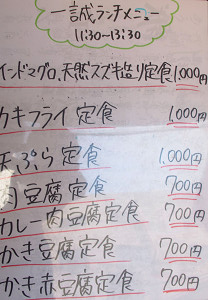 一誠ランチメニュー
11:30~13:30
インドマグロ、天然スズキ造り定食 1,000円
カキフライ定食 1,000円
天ぷら定食 1,000円
肉豆腐定食 700円
カレー肉豆腐定食 700円
かき豆腐定食 700円
かき赤豆腐定食 700円